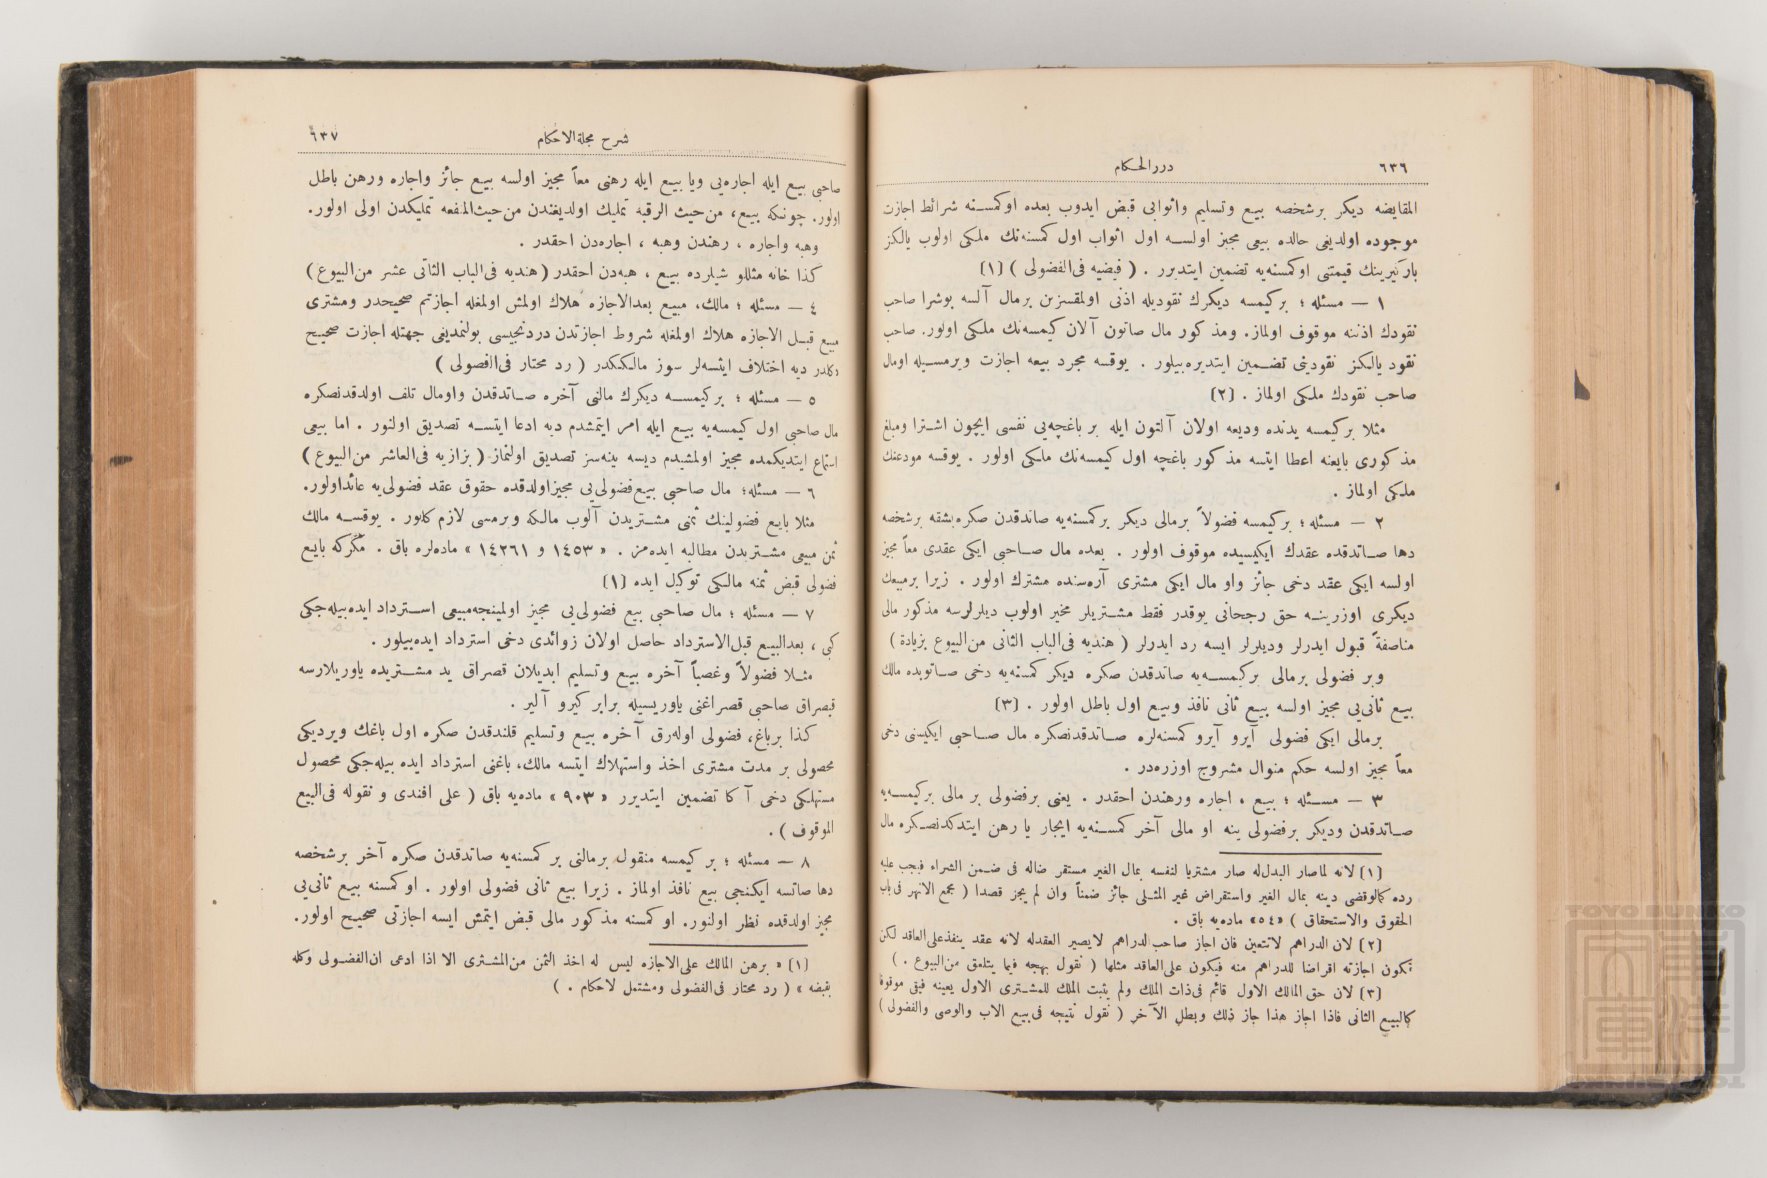 ٦٣٦
دررالحكام
المقايضه ديكر برشخصه بيع وتسليم واثوابى قبض ايدوب بعده اوكمسنه شرائط اجازت
موجوده اولديغى حالده بيعى مجيز اولسه اول اثواب اول كمسنه‌نك ملكى اولوب يالكز
باركيرينك قيمتنى اوكمسنه‌يه تضمين ايتديرر . ( فيضيه فى‌الفضولى ) [١]
١ — مسئله ؛ بركيمسه ديكرك نقوديله اذنى اولمقسزين برمال آلسه بوشرا صاحب
نقودك اذننه موقوف اولماز. ومذكور مال صاتون آلان كيمسه‌نك ملكى اولور. صاحب
نقود يالكز نقودينى تضمين ايتديره‌بيلور . يوقسه مجرد بيعه اجازت ويرمسيله اومال
صاحب نقودك ملكى اولماز . [٢]
مثلا بركيمسه يدنده وديعه اولان آلتون ايله بر باغچه‌يى نفسى ايچون اشترا ومبلغ
مذكورى بايعنه اعطا ايتسه مذكور باغچه اول كيمسه‌نك ملكى اولور . يوقسه مودعنك
ملكى اولماز .
٢ — مسئله ؛ بركيمسه فضولاً برمالى ديكر بركمسنه‌يه صاتدقدن صكره‌بشقه برشخصه
دها صاتدقده عقدك ايكيسيده موقوف اولور . بعده مال صاحبى ايكى عقدى معاً مجيز
اولسه ايكى عقد دخى جائز واو مال ايكى مشترى آره‌سنده مشترك اولور . زيرا برمبيعك
ديكرى اوزرينه حق رجحانى يوقدر فقط مشتريلر مخير اولوب ديلرلرسه مذكور مالى
مناصفةً قبول ايدرلر وديلرلر ايسه رد ايدرلر ( هنديه فى‌الباب الثانى من‌البيوع بزيادة )
وبر فضولى برمالى بركيمسه‌يه صاتدقدن صكره ديكر كمسنه‌يه دخى صاتوبده مالك
بيع ثانى‌يى مجيز اولسه بيع ثانى نافذ وبيع اول باطل اولور . [٣]
برمالى ايكى فضولى آيرو آيرو كمسنه‌لره صاتدقدنصكره مال صاحبى ايكيسنى دخى
معاً مجيز اولسه حكم منوال مشروح اوزره‌در .
٣ — مسئله ؛ بيع ، اجاره ورهندن احقدر . يعنى برفضولى بر مالى بركيمسه‌يه
صاتدقدن وديكر برفضولى ينه او مالى آخر كمسنه‌يه ايجار يا رهن ايتدكدنصكره مال
[١] لانه لماصار البدل‌له صار مشتريا لنفسه بمال الغير مستقر ضاله فى ضمن الشراء فيجب عليه
رده كمالوقضى دينه بمال الغير واستقراض غير المثلى جائز ضمناً وان لم يجز قصدا ( مجمع الانهر فى‌باب
الحقوق والاستحقاق ) «٥٤» ماده‌يه باق .
[٢] لان الدراهم لاتتعين فان اجاز صاحب‌الدراهم لايصير العقدله لانه عقد ينفذعلى‌العاقد لكن
تكون اجازته اقراضا للدراهم منه فيكون على‌العاقد مثلها ( نقول بهجه فيما يتلمق من‌البيوع . )
[٣] لان حق المالك الاول قائم فى‌ذات الملك ولم يثبت الملك للمشترى الاول بعينه فبقى موقوفا
كالبيع الثانى فاذا اجاز هذا جاز ذلك وبطل الآخر ( نقول نتيجه فى‌بيع الاب والوصى والفضولى )
شرح مجلةالاحكام
٦٣٧
صاحبى بيع ايله اجاره‌يى ويا بيع ايله رهنى معاً مجيز اولسه بيع جائز واجاره ورهن باطل
اولور. چونكه بيع، من‌حيث الرقبه تمليك اولديغندن من‌حيث‌المنفعه تمليكدن اولى اولور.
وهبه واجاره ، رهندن وهبه ، اجاره‌دن احقدر .
كذا خانه مثللو شيلرده بيع ، هبه‌دن احقدر ( هنديه فى‌الباب الثانى عشر من‌البيوع )
٤ — مسئله ؛ مالك، مبيع بعدالاجازه هلاك اولمش اولمغله اجازتم صحيحدر ومشترى
مبيع قبل الاجازه هلاك اولمغله شروط اجازتدن دردنجيسى بولنمديغى جهتله اجازت صحيح
دكلدر ديه اختلاف ايتسه‌لر سوز مالككدر ( رد محتار فى‌الفضولى )
٥ — مسئله ؛ بركيمسه ديكرك مالنى آخره صاتدقدن واومال تلف اولدقدنصكره
مال صاحبى اول كيمسه‌يه بيع ايله امر ايتمشدم ديه ادعا ايتسه تصديق اولنور . اما بيعى
استماع ايتديكمده مجيز اولمشيدم ديسه بينه‌سز تصديق اولنماز ( بزازيه فى‌العاشر من‌البيوع )
٦ — مسئله؛ مال صاحبى بيع‌فضولى‌يى مجيزاولدقده حقوق عقد فضولى‌يه عائداولور.
مثلا بايع فضولينك ثمنى مشتريدن آلوب مالكه ويرمسى لازم كلور . يوقسه مالك
ثمن مبيعى مشتريدن مطالبه ايده‌مز . « ١٤٥٣ و ١٤٢٦١ » ماده‌لره باق . مكركه بايع
فضولى قبض ثمنه مالكى توكيل ايده [١]
٧ — مسئله ؛ مال صاحبى بيع فضولى‌يى مجيز اولمينجه‌مبيعى استرداد ايده‌بيله‌جكى
كبى ، بعدالبيع قبل‌الاسترداد حاصل اولان زوائدى دخى استرداد ايده‌بيلور .
مثلا فضولاً وغصباً آخره بيع وتسليم ايديلان قصراق يد مشتريده ياوريلارسه
قيصراق صاحبى قصراغنى ياوريسيله برابر كيرو آلير .
كذا برباغ، فضولى اوله‌رق آخره بيع وتسليم قلندقدن صكره اول باغك ويرديكى
محصولى بر مدت مشترى اخذ واستهلاك ايتسه مالك، باغنى استرداد ايده بيله‌جكى محصول
مستهلكى دخى آكا تضمين ايتديرر « ٩٠٣ » ماده‌يه باق ( على افندى و نقوله فى‌البيع
الموقوف ) .
٨ — مسئله ؛ بركيمسه منقول برمالنى بر كمسنه‌يه صاتدقدن صكره آخر برشخصه
دها صاتسه ايكنجى بيع نافذ اولماز . زيرا بيع ثانى فضولى اولور . اوكمسنه بيع ثانى‌يى
مجيز اولدقده نظر اولنور. او كمسنه مذكور مالى قبض ايتمش ايسه اجازتى صحيح اولور.
[١] « برهن المالك على‌الاجازه ليس له اخذ الثمن من‌المشترى الا اذا ادعى ان‌الفضولى وكله
بقبضه » ( رد محتار فى‌الفضولى ومشتمل لاحكام . )
TOYO BUNKO